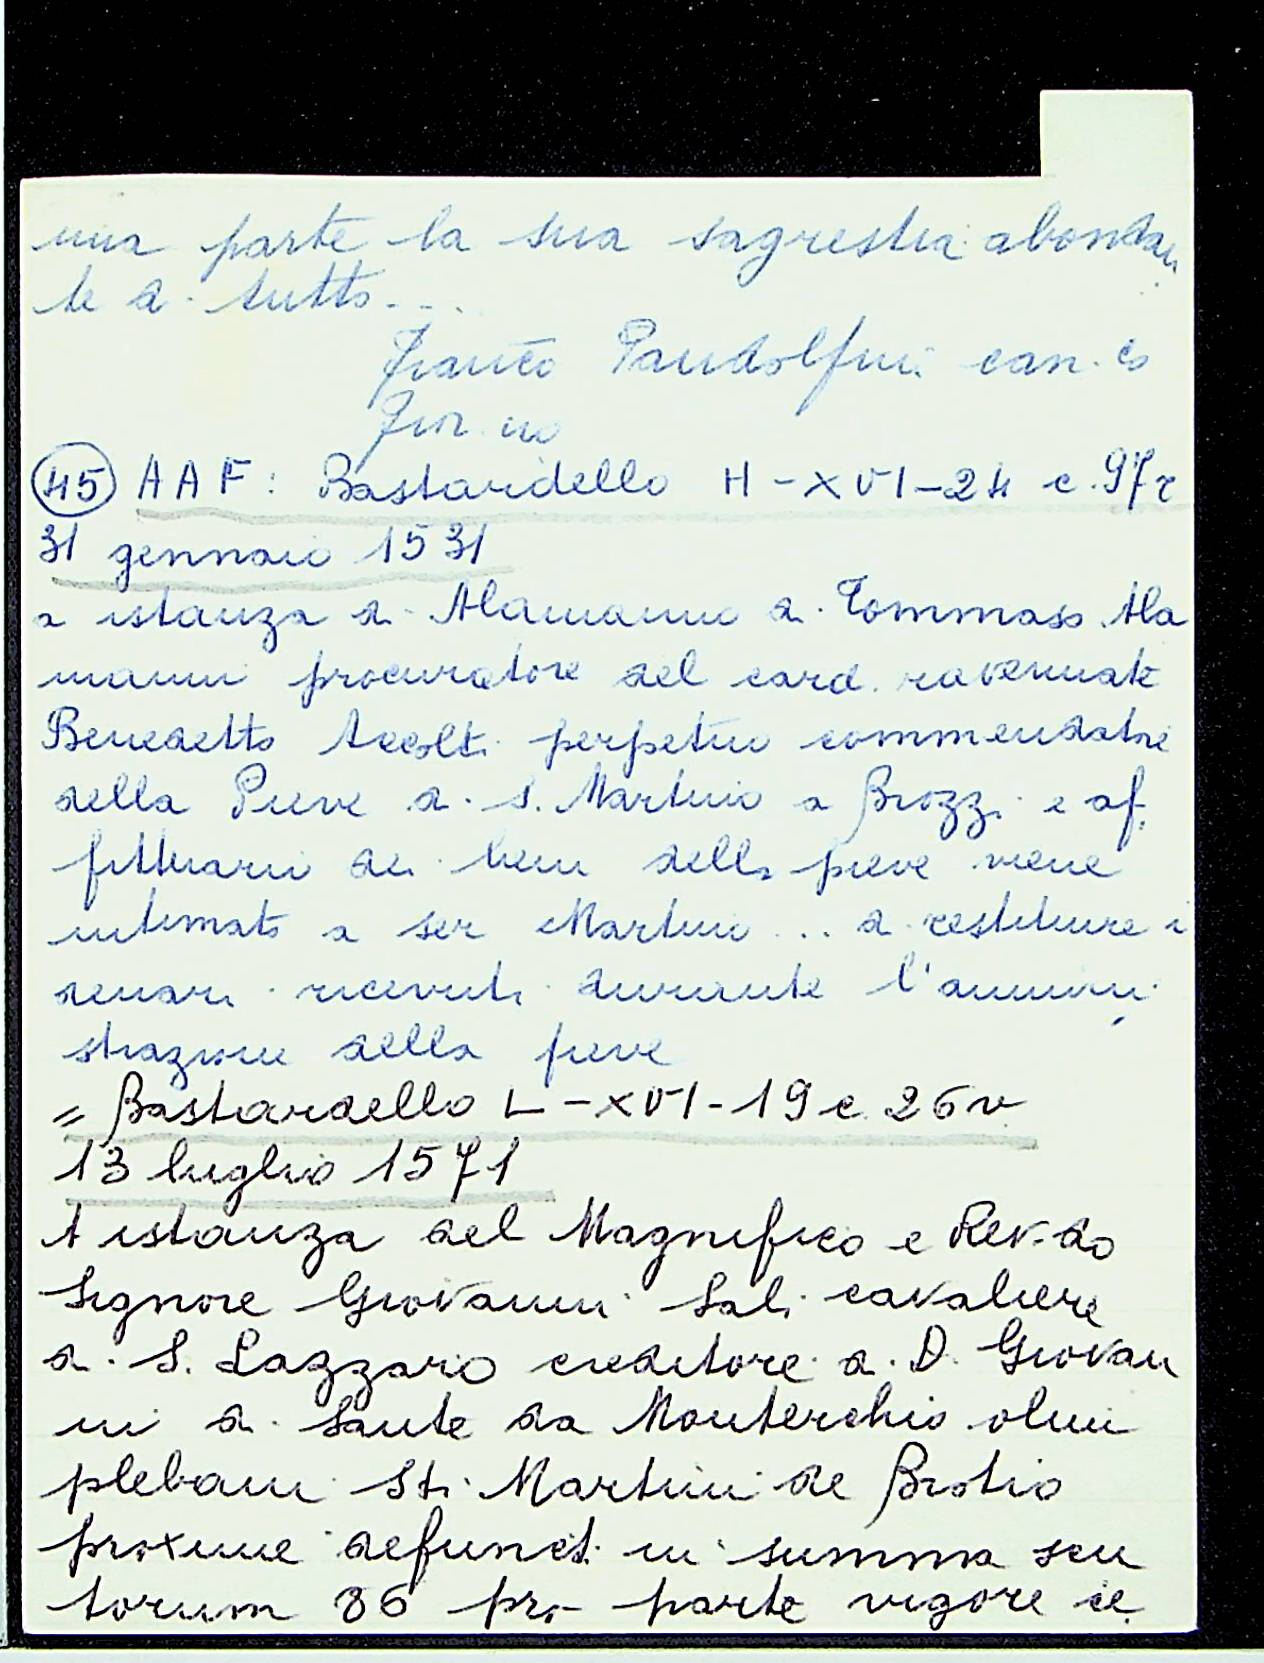 una parte la sua sagrestia abondan
te di tutto....
Franco Pandolfini can. co
Fior. no
45 AAF: Bastardello H-XVI-24 c. 97r
31 gennaio 1531
a istanza di Alamanno di Tommaso Ala
manni procuratore del card. ravennate
Benedetto Accolti perpetuo commendatore
della Pieve di S. Martino a Brozzi e af,
fittuario dei beni della pieve viene
intimato a ser Martino ... di restituire i
denari ricevuti durante l'ammini
strazione della pieve
= Bastardello L-XVI-19 c. 26v
13 luglio 1571
A istanza del Magnifico e Rev.do
Signore Giovanni Sali cavaliere
di S. Lazzaro creditore di D. Giovan
ni di Sante da Monterchio olim
plebani Sti Martini de Brotio
proxime defuncti in summa scu
torum 86 pro parte vigore ce